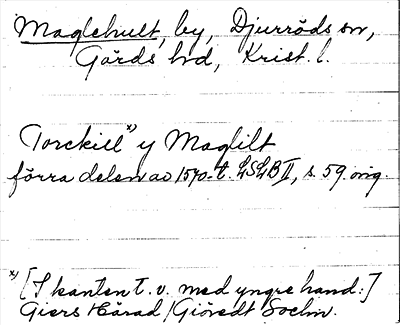 Maglehult, by, Djurröds sn,
Gärds hd, Krist. l.
Torckill *) y Maglilt
förra delen av 1570-t. LSLB II, s. 59. orig.
*) [I kanten t. v. med yngre hand:]
Giers Härad / Giöredt Sochn.